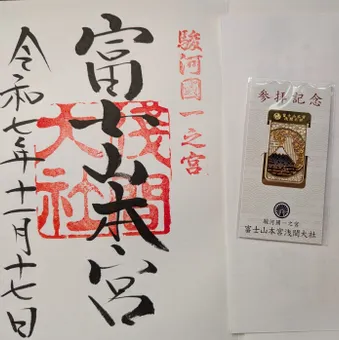 駿河國一之宮
富士山本宮
浅間大社
令和七年十一月十七日
参拝記念
駿河國一之宮
富士山本宮浅間大社